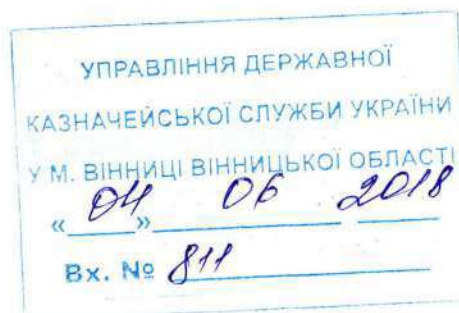 УПРАВЛІННЯ ДЕРЖАВНОЇ
КАЗНАЧЕЙСЬКОЇ СЛУЖБИ УКРАЇНИ
У М. ВІННИЦІ ВІННИЦЬКОЇ ОБЛАСТІ
«04» 06 2018
Вх. № 811